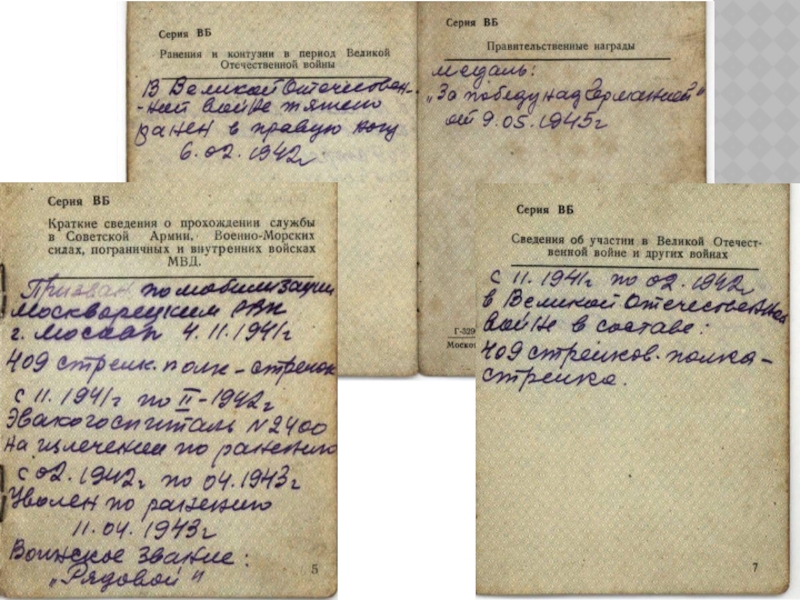 Серия ВБ
Ранения и контузии в период Великой
Отечественной войны
В Великой Отечествен-
-ной войне тяжело
ранен в правую ногу
6.02.1942г
Серия ВБ
Правительственные награды
медаль:
„За победу над Германией"
от 9.05.1945г
Г-329
Москов
Серия ВБ
Краткие сведения о прохождении службы
в Советской Армии, Военно-Морских
силах, пограничных и внутренних войсках
МВД.
Призван по мобилизации
Москварецким РВК
г. Москвы 4.11.1941г
409 стрелк. полк - стрелок
с 11.1941г по II-1942г
Эвакогоспиталь №2400
на излечении по ранению
с 02.1942г по 04.1943г
Уволен по ранению
11.04.1943г
Воинское звание:
„Рядовой"
5
Серия ВБ
Сведения об участии в Великой Отечест-
венной войне и других войнах
с 11.1941г по 02.1942г
в Великой Отечественной
войне в составе:
409 стрелков. полка -
стрелка.
7